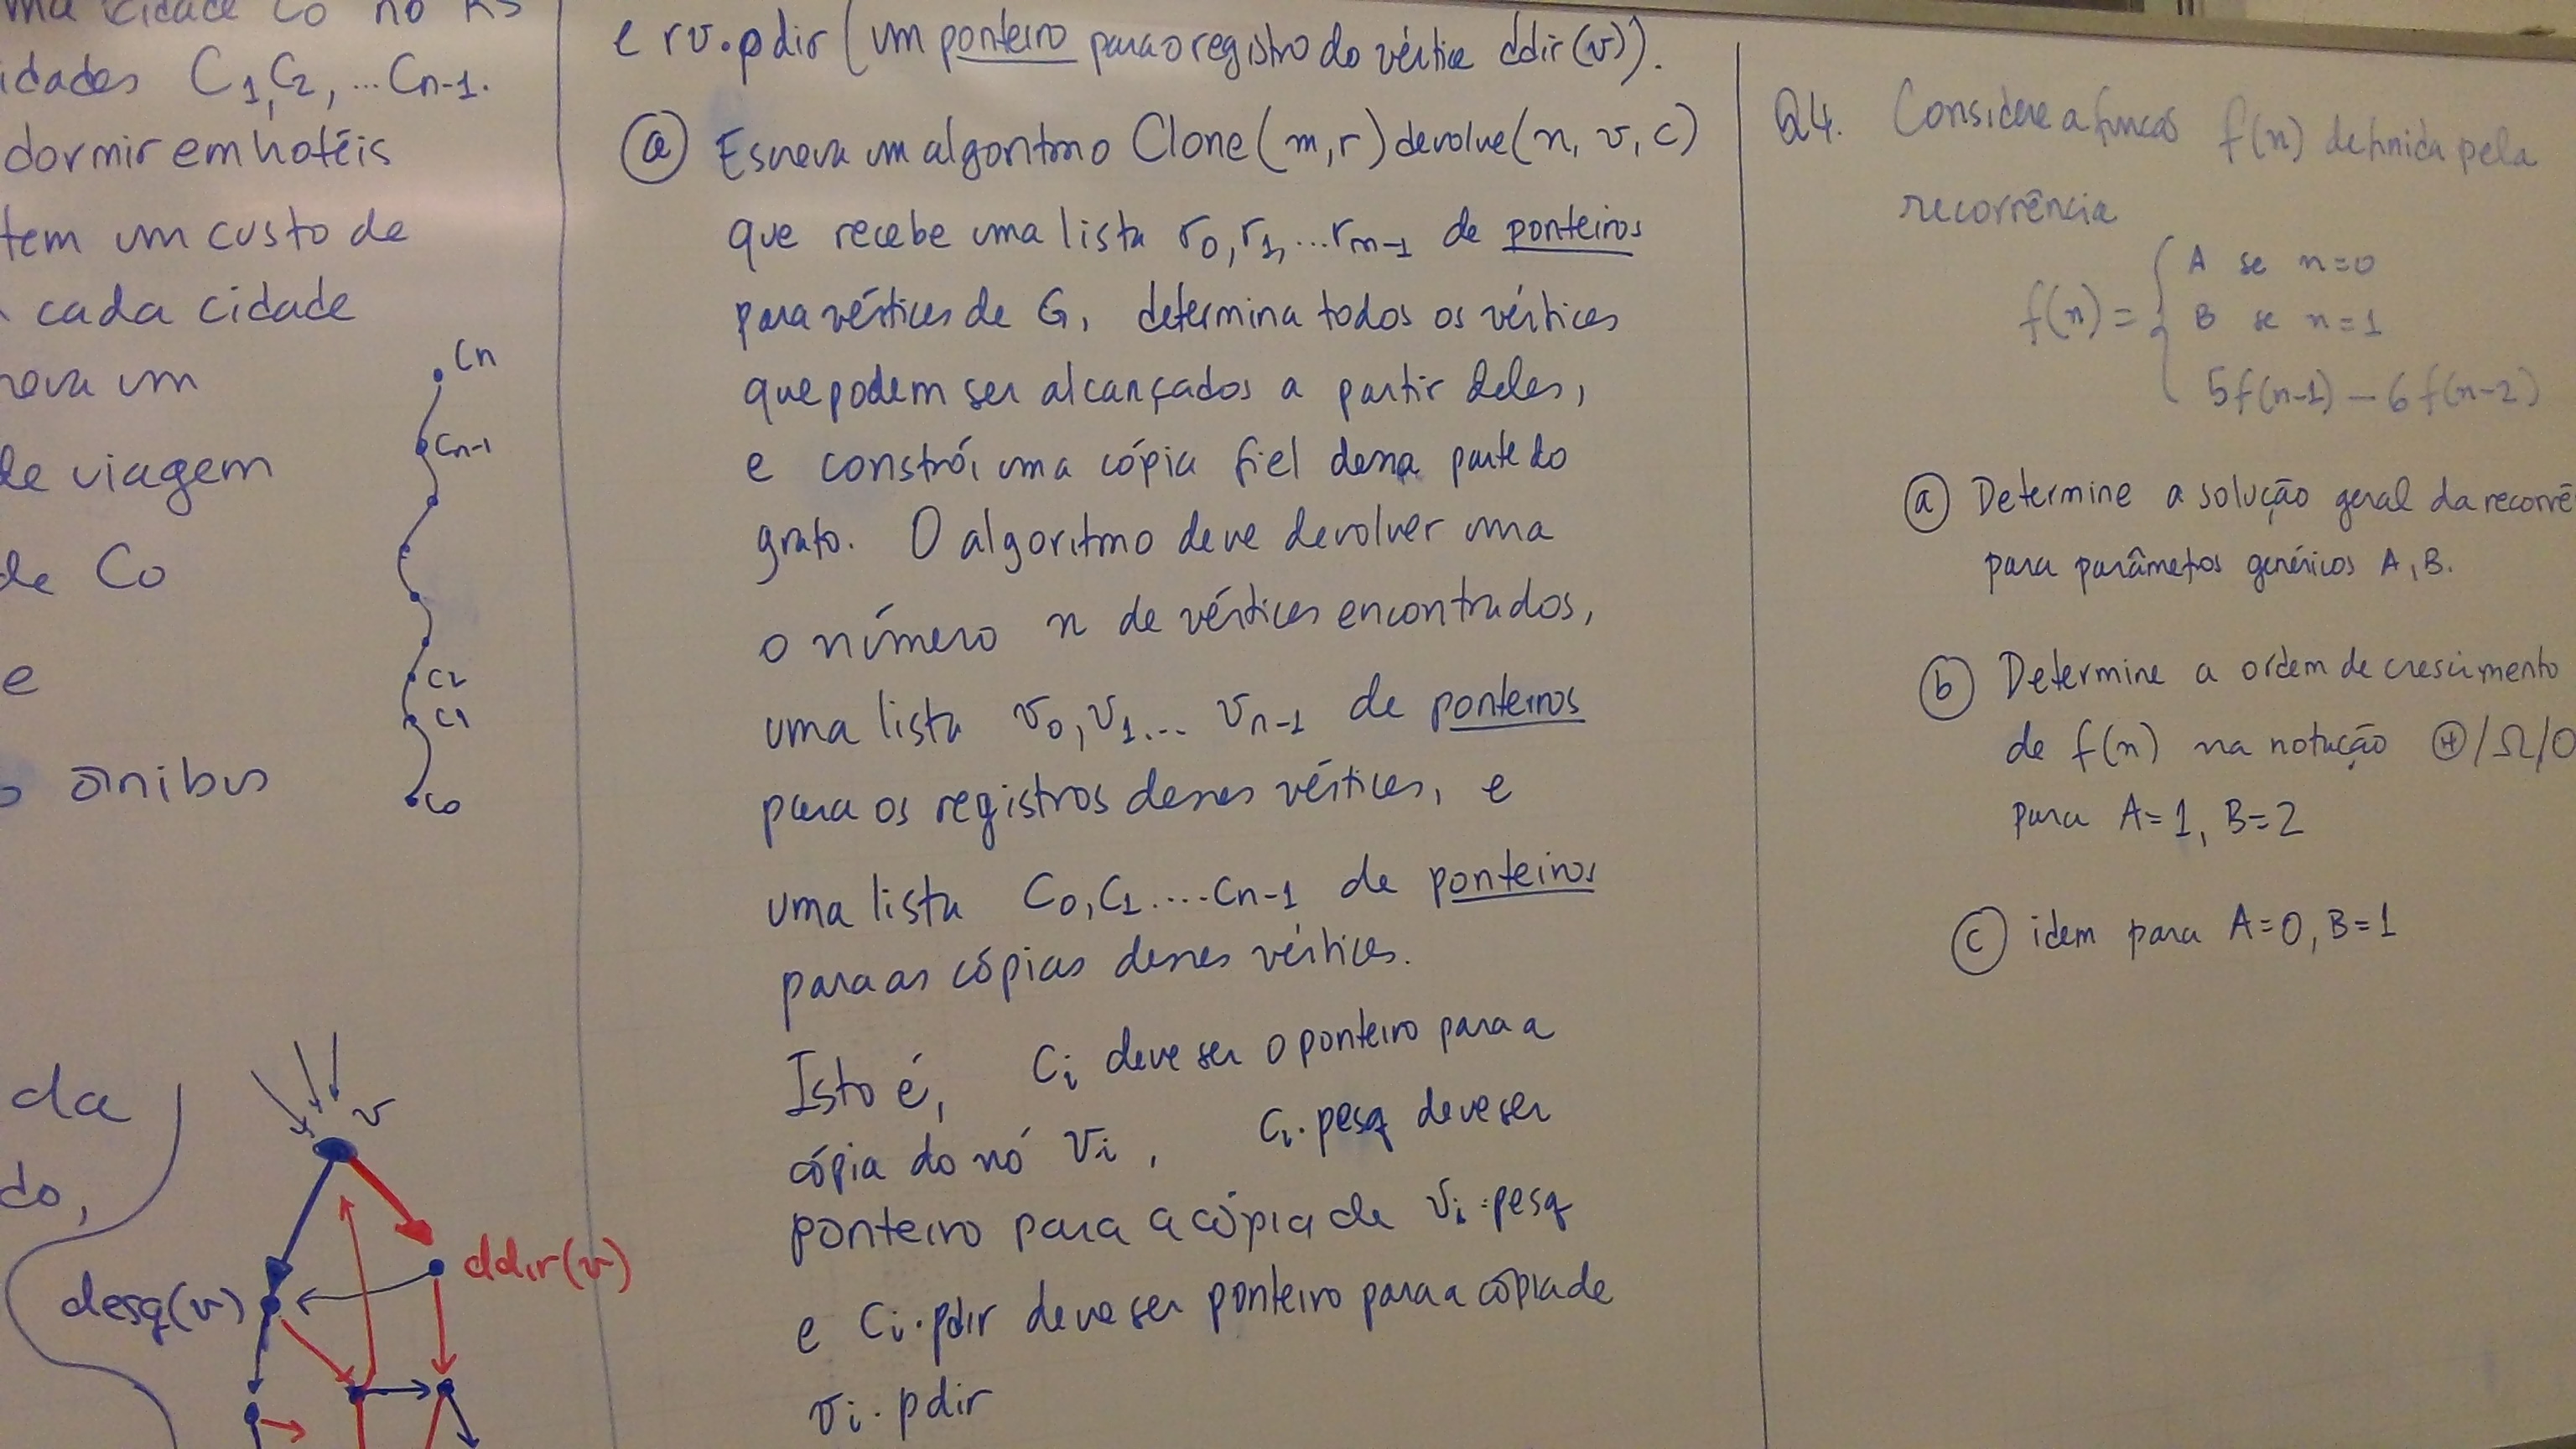 cidade Co no RS
idades C1, C2, ... Cn-1.
dormir em hotéis
tem um custo de
cada cidade
um
de viagem
de Co
e
ônibus
Cn
Cn-1
C2
C1
Co
da
do,
v
desq(v)
ddir(v)
e rv.pdir (um ponteiro para o registro do vértice ddir(v)).
(a) Escreva um algoritmo Clone(m,r) devolve (n, v, c)
que recebe uma lista r0, r1, ... rm-1 de ponteiros
para vértices de G, determina todos os vértices
que podem ser alcançados a partir deles,
e constrói uma cópia fiel dessa parte do
grafo. O algoritmo deve devolver uma
o número n de vértices encontrados,
uma lista v0, v1... vn-1 de ponteiros
para os registros desses vértices, e
uma lista C0, C1....Cn-1 de ponteiros
para as cópias desses vértices.
Isto é, Ci deve ser o ponteiro para a
cópia do nó vi, Ci.pesq deve ser
ponteiro para a cópia de vi.pesq
e Ci.pdir deve ser ponteiro para a cópia de
vi.pdir
Q4. Considere a função f(n) definida pela
recorrência
A se n=0
f(n) = { B se n=1
5f(n-1) - 6f(n-2)
(a) Determine a solução geral da recorrê
para parâmetros genéricos A, B.
(b) Determine a ordem de crescimento
de f(n) na notação Θ/Ω/O
para A=1, B=2
(c) idem para A=0, B=1